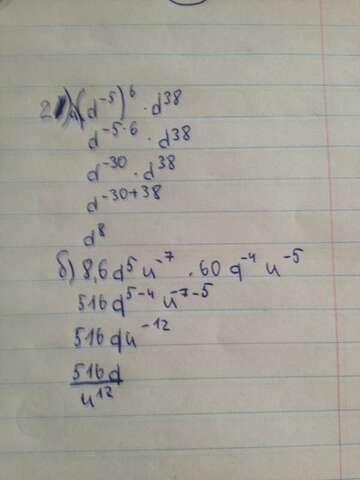 2 а) (d⁻⁵)⁶ · d³⁸
d⁻⁵·⁶ · d³⁸
d⁻³⁰ · d³⁸
d⁻³⁰⁺³⁸
d⁸
б) 8,6 d⁵ u⁻⁷ · 60 d⁻⁴ u⁻⁵
516 d⁵⁻⁴ u⁻⁷⁻⁵
516 d u⁻¹²
516 d
u¹²